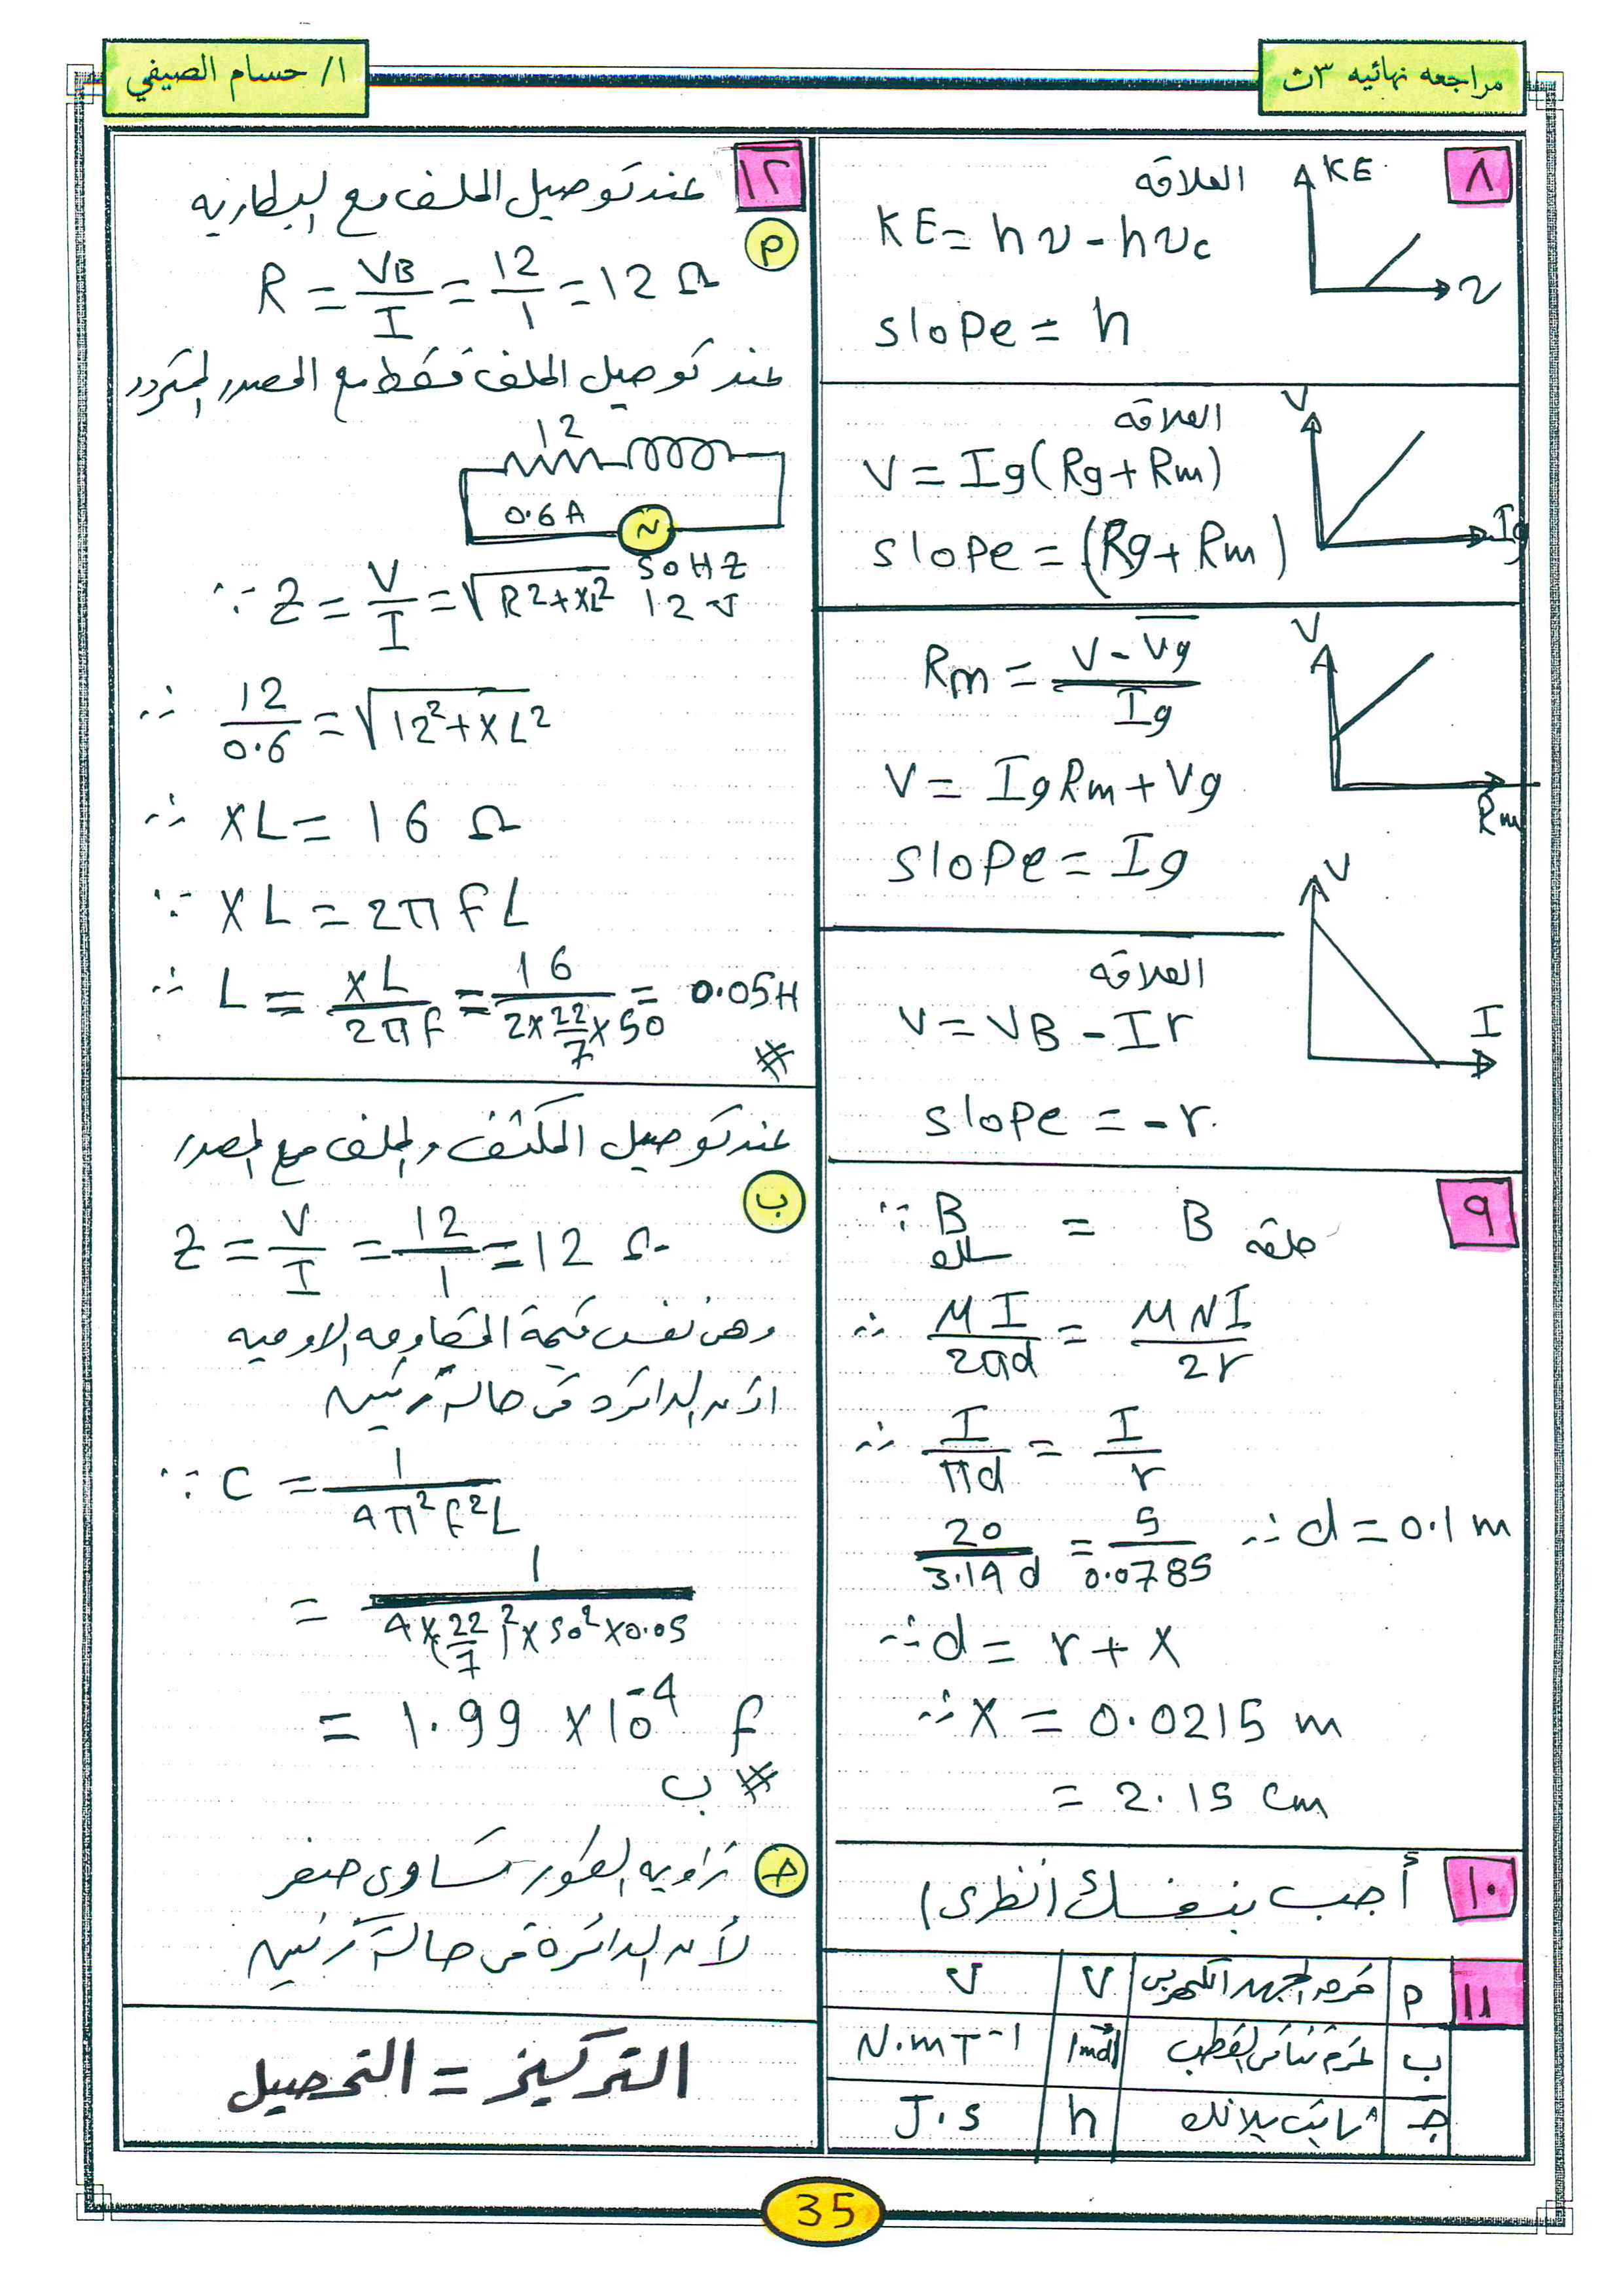 مراجعه نهائيه ٣ث
ا/ حسام الصيفي
٨
العلاقه
KE
KE = hν - hνc
ν
slope = h
العلاقه
V
V = Ig(Rg+Rm)
slope = (Rg+Rm)
Ig
Rm = V - Vg / Ig
V
V = IgRm + Vg
Rm
slope = Ig
V
العلاقه
V = VB - Ir
I
slope = -r
٩
∵ B سلك = B حلقه
∴ MI / 2πd = MNI / 2r
∴ I / πd = I / r
20 / 3.14 d = 5 / 0.0785 ∴ d = 0.1 m
∴ d = r + X
∴ X = 0.0215 m
= 2.15 cm
١٠
أجب بنفسك (نظرى)
١١
أ فرق الجهد الكهربى V V
ب عزم ثنائى القطب |md| N.m T⁻¹
جـ ثابت بلانك h J.s
١٢
عند توصيل الملف مع البطاريه
أ
R = VB / I = 12 / 1 = 12 Ω
عند توصيل الملف فقط مع المصدر المتردد
12
0.6 A
~
50 HZ
12 V
∵ Z = V / I = √R²+XL²
∴ 12 / 0.6 = √12²+XL²
∴ XL = 16 Ω
∵ XL = 2π f L
∴ L = XL / 2πf = 16 / 2×22/7×50 = 0.05 H
#
عند توصيل المكثف والملف مع المصدر
ب
Z = V / I = 12 / 1 = 12 Ω
وهى نفس قيمة المقاومه الاوميه
اذن الدائره فى حالة رنين
∵ C = 1 / 4π²f²L
= 1 / 4×(22/7)²×50²×0.05
= 1.99 ×10⁻⁴ f
# ب
جـ زاويه الطور تساوى صفر
لأن الدائرة فى حالة رنين
التركيز = التحصيل
35